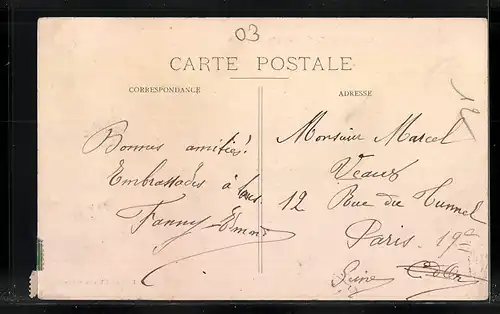 03
CARTE POSTALE
CORRESPONDANCE
ADRESSE
12
Bonnes amitiés!
Embrassades à tous
Fanny
Monsieur Marcel
Veaux
12 Rue du Tunnel
Paris. 19e
Seine C. d'Or